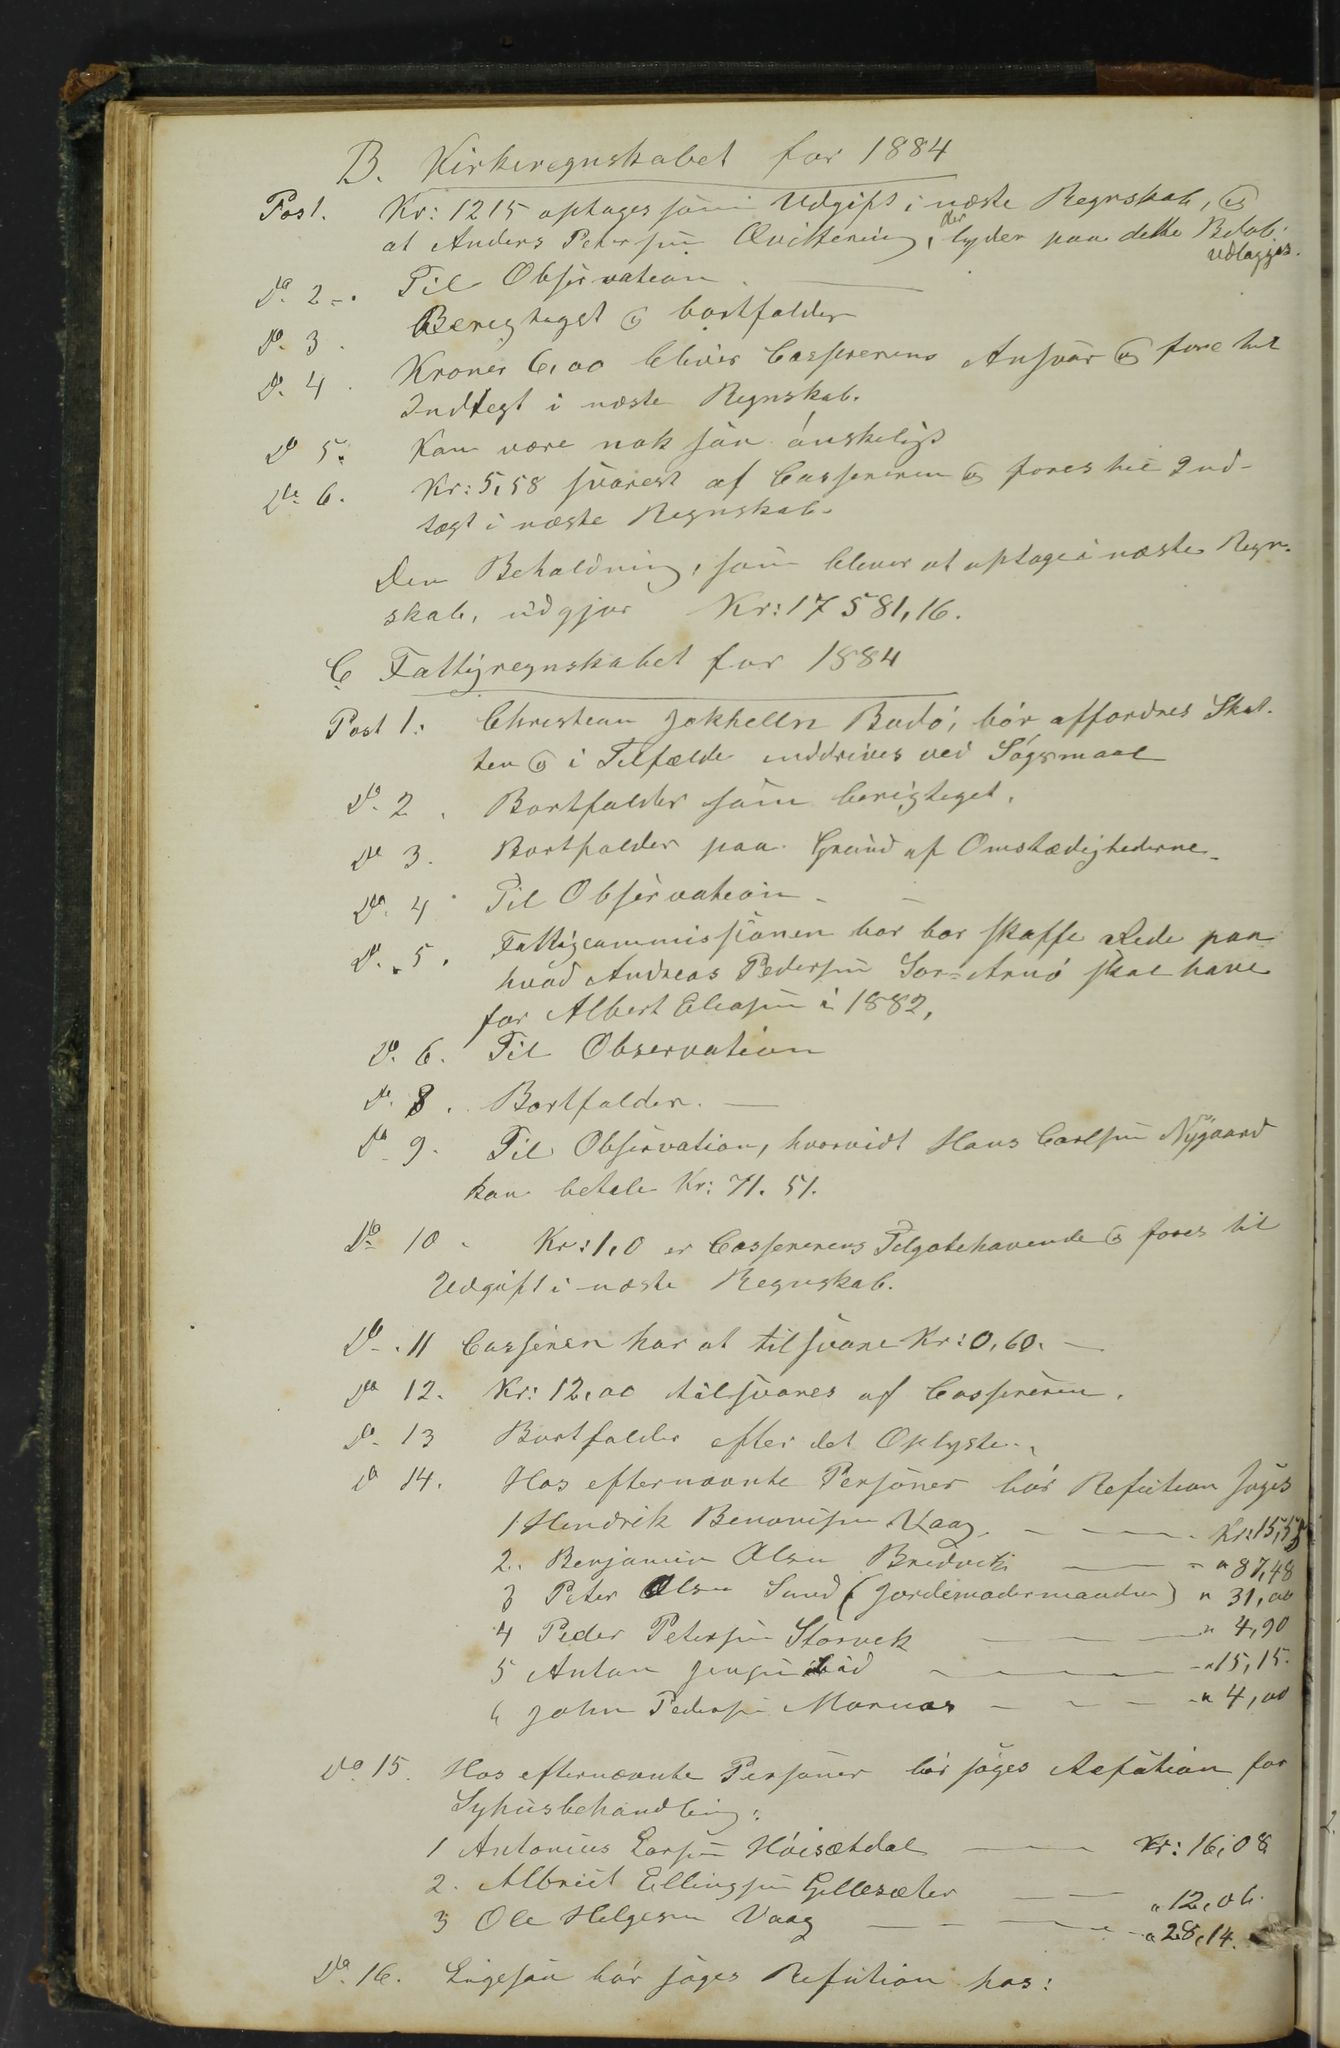 B. Kirkeregnskabet for 1884
Post 1. Kr: 1215 optages som Udgift i næste Regnskab, og
at Anders Petersen Qvittering, der lyder paa dette Beløb,
udlægges.
Do. 2 -. Til Observation.
Do. 3. Berigtiget og bortfalder
Do. 4. Kroner 6,00 bliver Casserens Ansvar og føre til
Indtegt i næste Regnskab.
Do 5. Kan være nok saa ønskeligt
Do. 6. Kr: 5,58 svarest af Cassereren og føres til Ind-
tægt i næste Regnskab.
Den Beholdning, som bliver at optage i næste Regn-
skab, udgjør Kr: 17581,16.
C Fattigregnskabet for 1884
Post 1. Christian Jakhelln Bodø, bør affordres Skat-
ten og i Tilfælde inddrives ved Søgsmaal
Do. 2. Bortfalder som berigtiget.
Do 3. Bortfalder paa Grund af Omstædighederne.
Do. 4 Til Observation.
Do. 5. Fattigcommissionen bør bør skaffe Rede paa
hvad Andreas Pedersen Sør-Arnø skal have
for Albert Eliasen i 1882.
Do. 6. Til Observation
Do. 8. Bortfalder.
Do 9. Til Observation, hvorvidt Hans Carlsen Nygaard
kan betale Kr: 71.51.
Do 10. Kr: 1,0 er Cassererens Tilgodehavende og føres til
Udgift i næste Regnskab.
Do. 11 Casseren har at tilsvare Kr: 0,60.
Do 12. Kr: 12,00 tilsvares af Cassereren.
Do. 13 Bortfalder efter det Oplyste.
Do 14. Hos efternævnte Personer bør Refution søges
1 Hendrik Benonisen Vaag Kr: 15,53
2. Benjamin Olsen Bredvik " 87,48
3 Peter Olsen Sund (Jordemodermanden) " 31,00
4 Peder Petersen Storvik " 4,90
5 Anton Jensen " 15,15.
6 John Pedersen Mornes " 4,00
Do 15. Hos efternævnte Personer bør søges Refution for
Syhusbehandling:
1 Antonius Larsen Høisætdal Kr: 16,08
2. Albriit Ellingsen Gillesæter " 12,06.
3 Ole Helgesen Vaag " 28,14.
Do. 16. Ligesaa bør søges Refution hos: